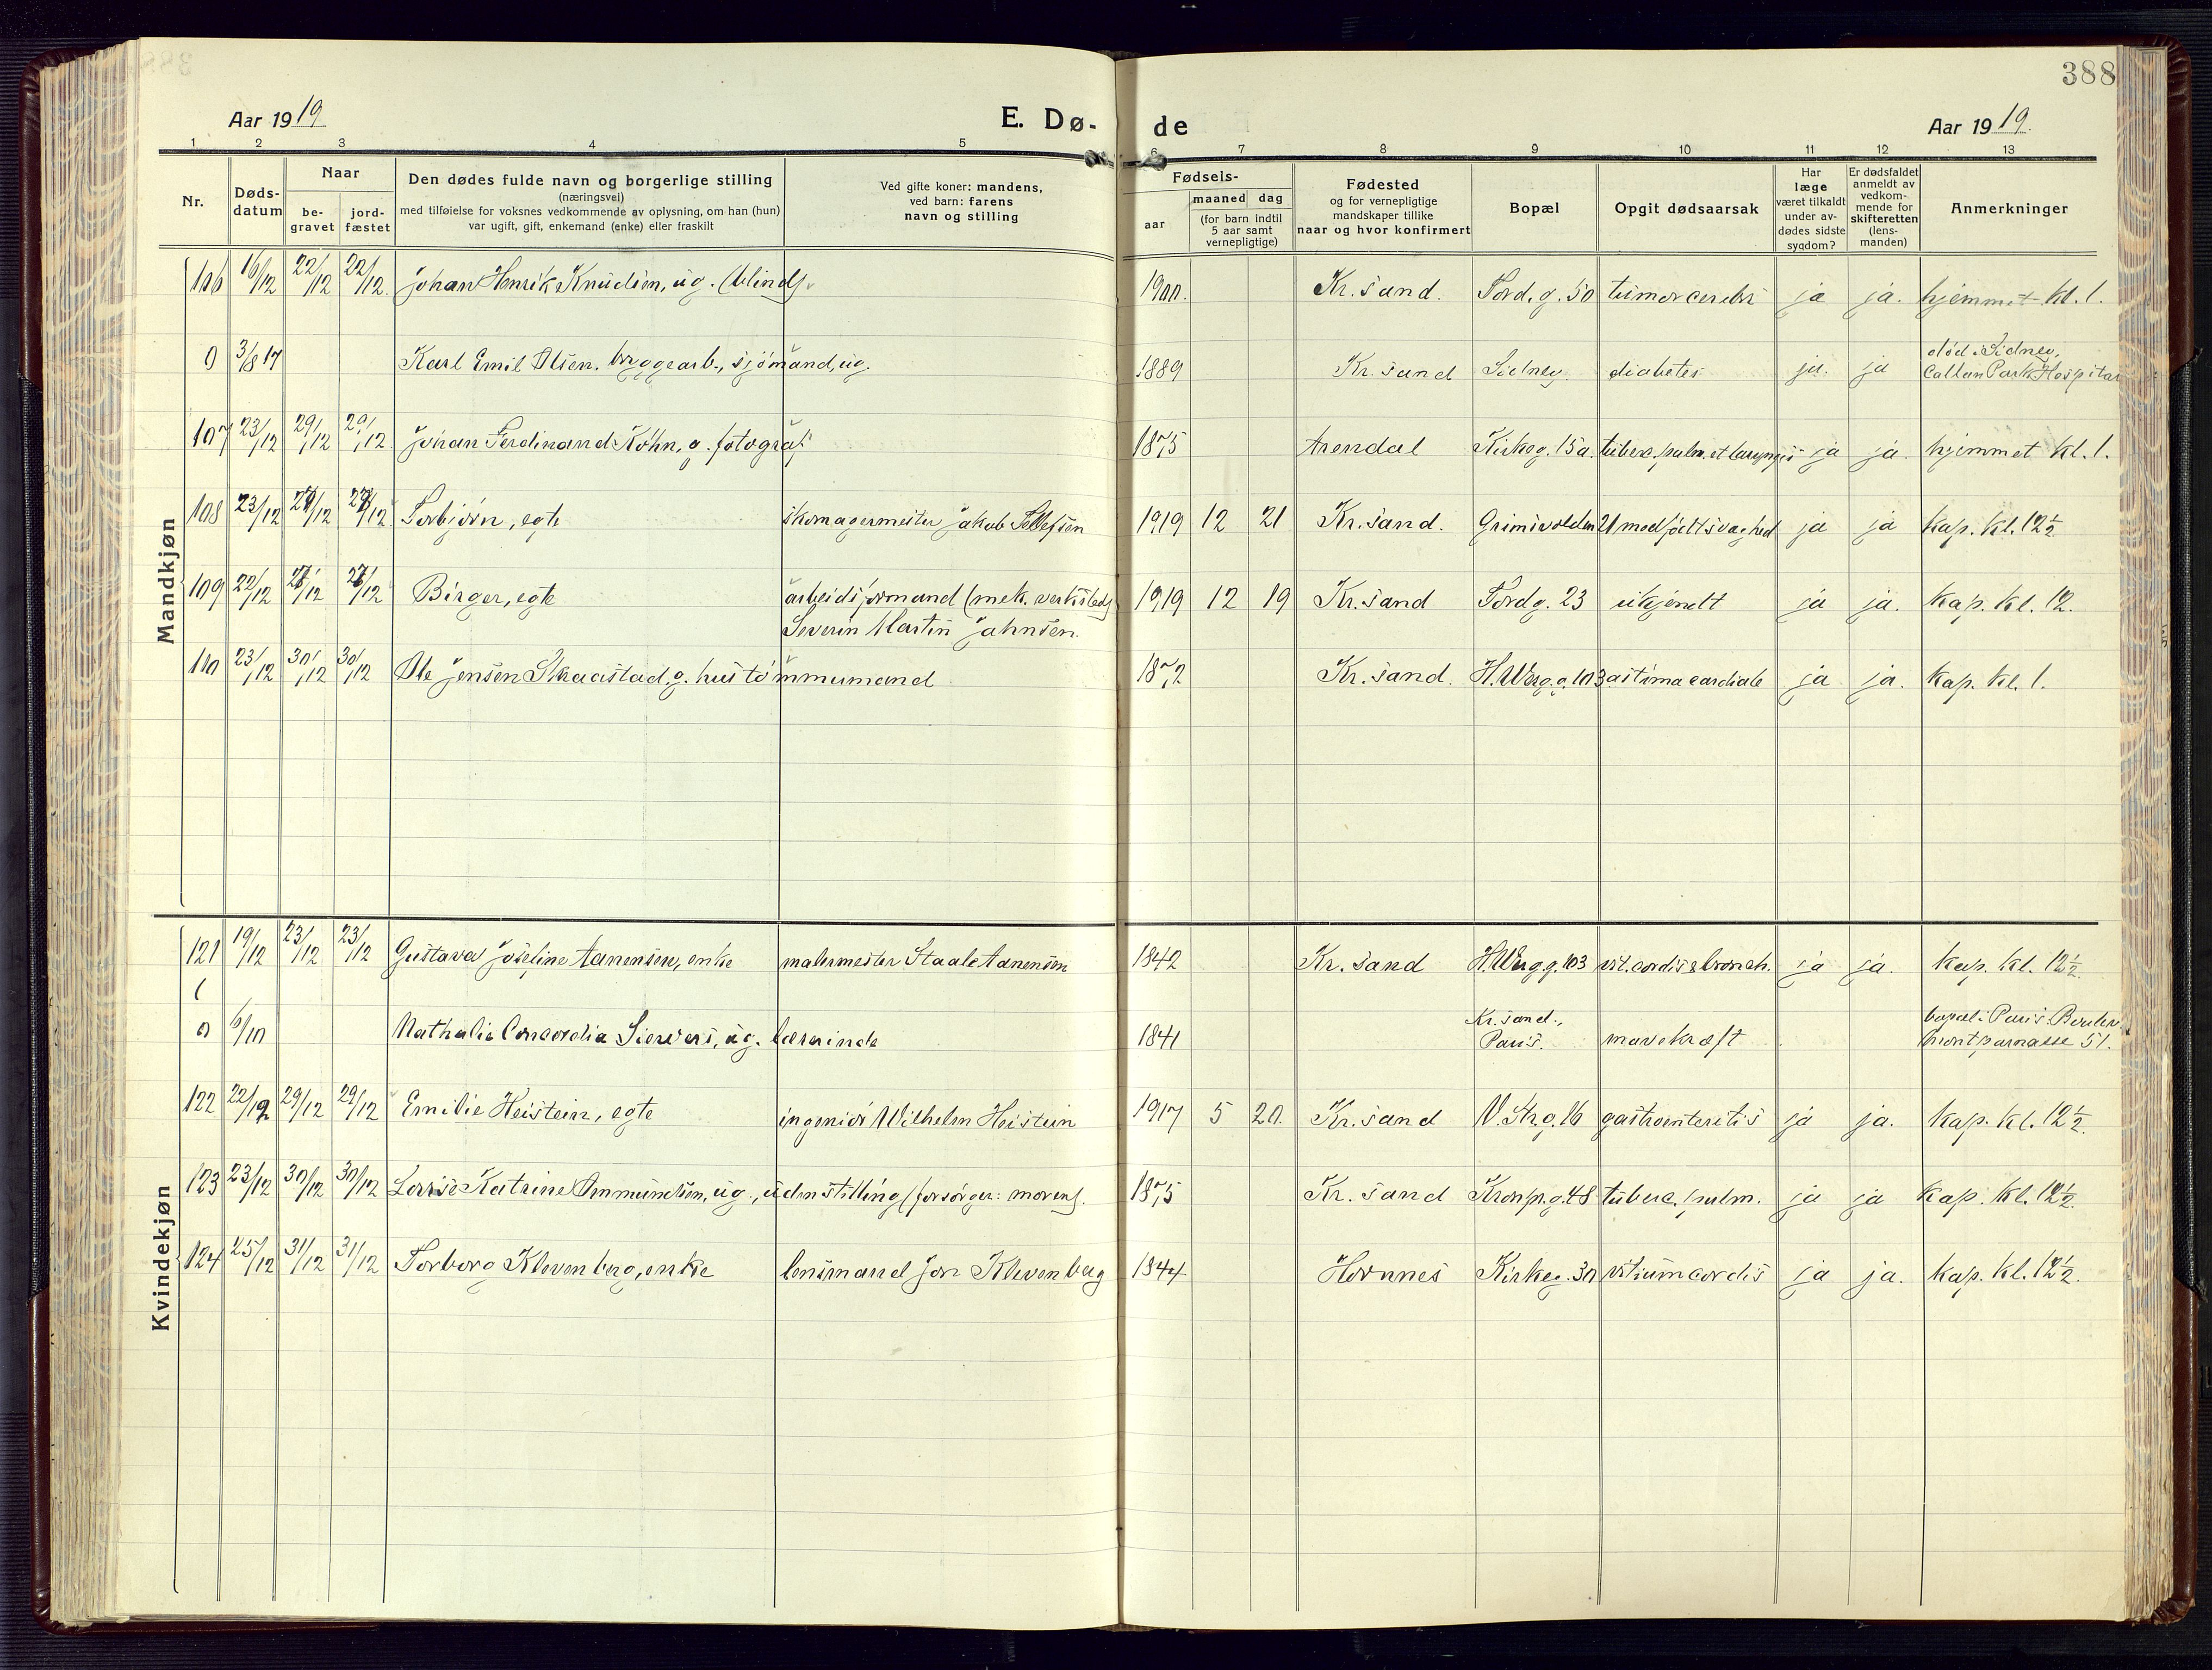 388
Aar 1919
E. Dø-
de
Aar 1919.
1 2 3 4 5 6 7 8 9 10 11 12 13
Nr.
Døds-
datum
Naar
be-
gravet
jord-
fæstet
Den dødes fulde navn og borgerlige stilling
(næringsvei)
med tilføielse for voksnes vedkommende av oplysning, om han (hun)
var ugift, gift, enkemand (enke) eller fraskilt
Ved gifte koner: mandens,
ved barn: farens
navn og stilling
Fødsels-
aar
maaned dag
(for barn indtil
5 aar samt
vernepligtige)
Fødested
og for vernepligtige
mandskaper tillike
naar og hvor konfirmert
Bopæl
Opgit dødsaarsak
Har
læge
været tilkaldt
under av-
dødes sidste
sygdom?
Er dødsfaldet
anmeldt av
vedkom-
mende for
skifteretten
(lens-
manden)
Anmerkninger
Mandkjøn
106 16/12 22/12 22/12. Johan Henrik Knudsen, ug. (blind). 1900. Kr.sand. Tord.g. 50 tumor cerebri ja ja. hjemmet kl. 1.
0 3/8 17 Karl Emil Olsen, bryggearb., sjømand, ug. 1889 Kr.sand Sidney. diabetes ja. ja død i Sidney,
Callan Park Hospital
107 23/12 29/12 29/12. Johan Ferdinand Köhn, g. fotograf 1875 Arendal Kirkeg. 15a. tuberc. pulm. et laryngis ja ja. hjemmet kl. 1.
108 23/12 27/12 27/12 Torbjørn, egte skomagermester Jakob Tellefsen 1919 12 21 Kr.sand. Grimsvolden 21 medfødt svaghed ja ja kap. kl. 12½
109 22/12 27/12 27/12 Birger, egte arbeidsformand (mek. verksted) 1919 12 19 Kr.sand Tordg. 23 ukjendt ja ja. kap. kl. 12.
Severin Martin Jahnsen.
110 23/12 30/12 30/12 Ole Jensen Skaastad, g. hustømmermand 1872 Kr.sand. H.Werg.g. 103 astma cardiale ja ja. kap. kl. 1.
Kvindekjøn
121 19/12 23/12 23/12 Gustava Joseline Aanensen, enke malermester Staale Aanensen 1842 Kr.sand H.Werg.g. 103 vit. cordis & bronch. ja ja. kap. kl. 12½.
0 6/10 Nathalie Concordia Sievers, ug. lærerinde 1841 Kr.sand.,
Paris. mavekræft bopæl: Paris. Boulev.
Montparnasse 51.
122 22/12 29/12 29/12 Emilie Heistein, egte ingeniør Wilhelm Heistein 1917 5 20. Kr.sand V. Str.g. 16 gastroenteritis ja ja. kap. kl. 12½.
123 23/12 30/12 30/12 Lovise Katrine Ommundsen, ug., uden stilling (forsørger: moren). 1875 Kr.sand Kronpr.g. 48 tuberc. pulm. ja ja kap. kl. 12½.
124 25/12 31/12 31/12 Torborg Klevenberg, enke lensmand Jon Klevenberg 1844 Hornnes Kirkeg. 30 vitium cordis ja ja. kap. kl. 12½.